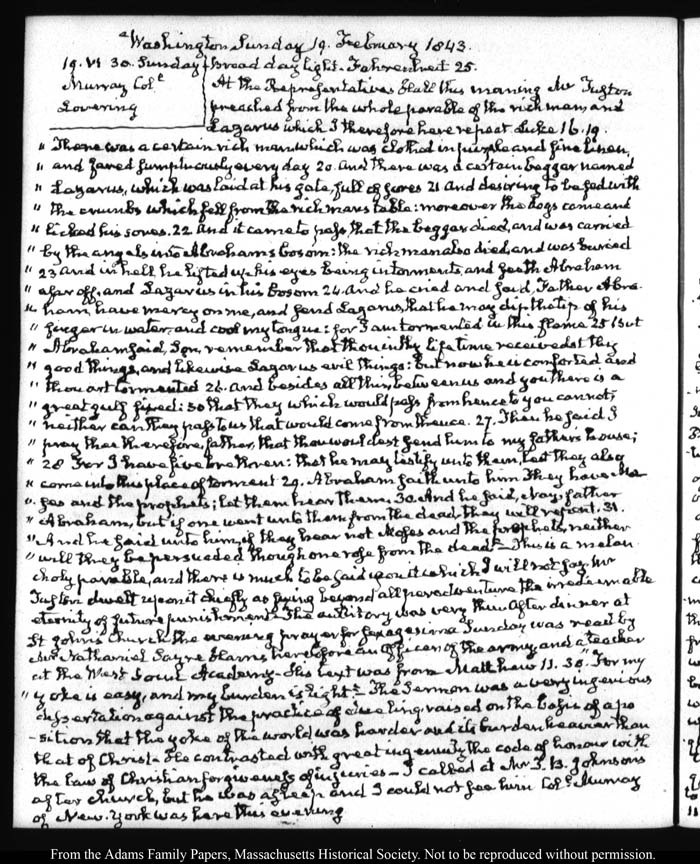 Washington Sunday 19. February 1843.
19. VI. 30. Sunday
Murray Col.
Lovering
Broad day light. Fahrenheit 25.
At the Representatives Hall this morning Mr Tuston
preached from the whole parable of the rich man, and
Lazarus which I therefore here repeat Luke 16. 19.
" There was a certain rich man which was clothed in purple and fine linen,
" and fared sumptuously every day 20. And there was a certain beggar named
" Lazarus, which was laid at his gate, full of sores 21 And desiring to be fed with
" the crumbs which fell from the rich mans table: moreover the dogs came and
" licked his sores. 22. And it came to pass, that the beggar died, and was carried
" by the angels into Abrahams bosom: the rich man also died, and was buried
" 23 And in hell he lifted up his eyes being in torments, and seeth Abraham
" afar off, and Lazarus in his bosom 24 And he cried and said, Father Abra-
" ham, have mercy on me, and send Lazarus, that he may dip the tip of his
" finger in water, and cool my tongue: for I am tormented in this flame 25 But
" Abraham said, Son, remember that thou in thy life time receivedst thy
" good things, and likewise Lazarus evil things: but now he is comforted and
" thou art tormented 26. And besides all this, between us and you there is a
" great gulf fixed: so that they which would pass from hence to you cannot;
" neither can they pass to us that would come from thence. 27. Then he said I
" pray thee therefore, father, that thou wouldest send him to my father's house;
" 28 For I have five brethren: that he may testify unto them, lest they also
" come into this place of torment 29. Abraham saith unto him They have Mo-
" ses and the prophets; let them hear them. 30. And he said, Nay, father
" Abraham, but if one went unto them from the dead, they will repent. 31.
" And he said unto him, if they hear not Moses and the prophets, neither
" will they be persuaded though one rose from the dead" – This is a melan-
choly parable, and there is much to be said upon it which I will not say. Mr
Tuston dwelt upon it chiefly as fixing beyond all peradventure the irredeemable
eternity of future punishment – The auditory was very thin After dinner at
St John's Church the evening prayer for Sexagesima Sunday was read by
Mr Nathaniel Sayre Harris heretofore an Officer of the army, and a teacher
at the West Point Academy – His text was from Matthew 11. 30. "For my
" yoke is easy, and my burden is light" – The Sermon was a very ingenious
dissertation against the practice of duelling, raised on the basis of a po
-sition that the yoke of the world was harder and its burden heavier than
that of Christ. He contrasted with great ingenuity the code of honour with
the law of Christian forgiveness of injuries – I called at Mr J. B. Johnsons
after church, but he was asleep and I could not see him Col. Murray
of New-York was here this evening
From the Adams Family Papers, Massachusetts Historical Society. Not to be reproduced without permission.